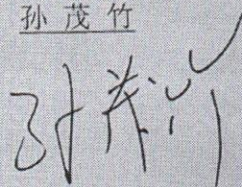 孙茂竹
孙茂竹